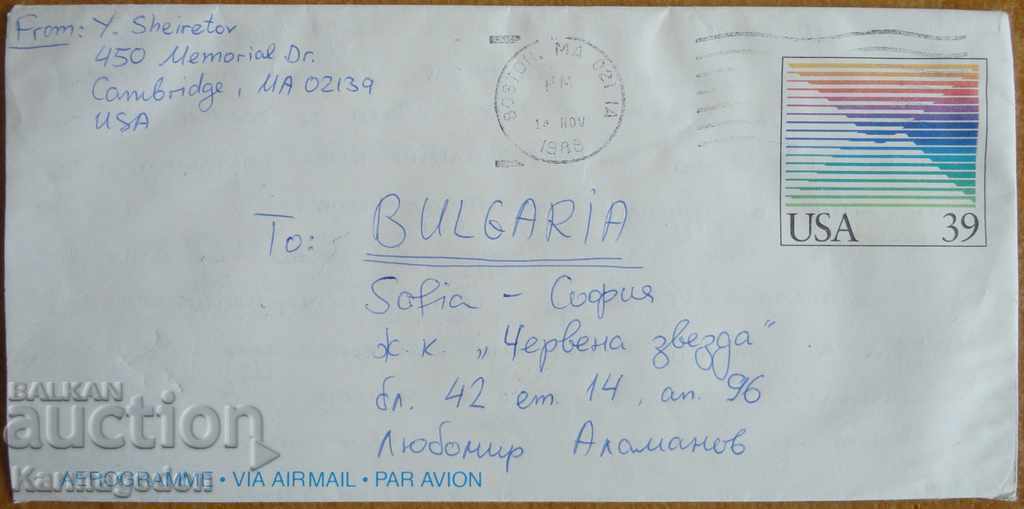 From: Y. Sheiretov
450 Memorial Dr.
Cambridge, MA 02139
USA
BOSTON, MA 021 1A
PM
NOV
USA 39
To: BULGARIA
Sofia - София
ж.к. „Червена звезда"
бл. 42 ет. 14, ап. 96
Любомир Аламанов
AEROGRAMME • VIA AIRMAIL • PAR AVION
BALKAN
auction
Karmagedon